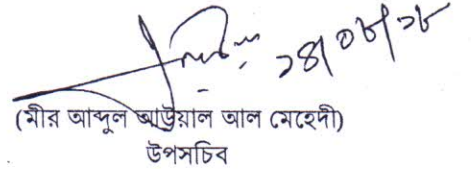 ১৪/০৮/১৮
(মীর আব্দুল আউয়াল আল মেহেদী)
উপসচিব